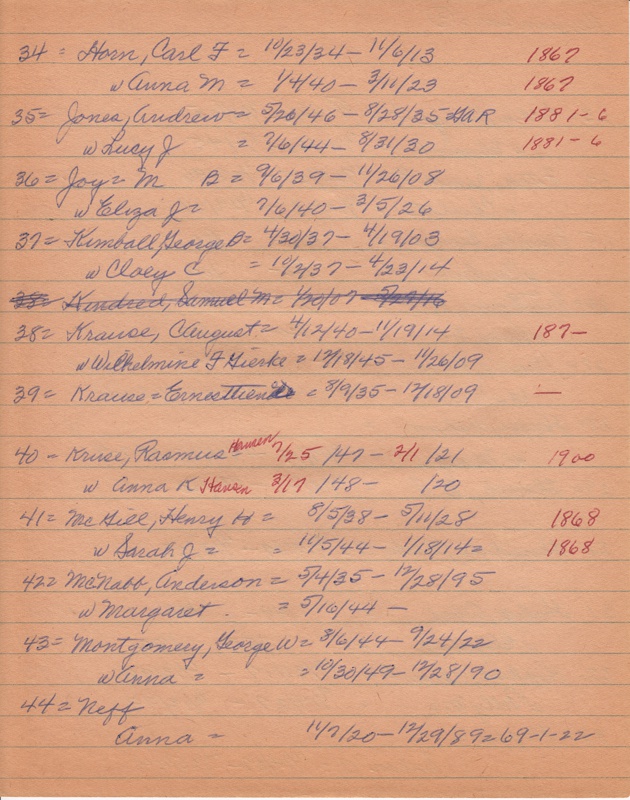 34 = Horn, Carl F = 10/23/34 - 11/6/13 1867
w Anna M = 1/4/40 - 3/11/23 1867
35 = Jones, Andrew = 5/26/46 - 8/28/35 GAR 1881-6
w Lucy J = 7/6/44 - 8/31/30 1881-6
36 = Joy = M B = 9/6/39 - 11/26/08
w Eliza J = 7/6/40 - 3/5/26
37 = Kimball, George B = 4/30/37 - 4/19/03
w Cloey C = 10/2/37 - 4/23/14
38 = Kindred, Samuel M = 1/20/07 - 5/27/76
38 = Krause, August = 4/12/40 - 11/19/14 187-
w Wilhelmine F Gierke = 12/18/45 - 11/26/09
39 = Krause = Ernesttiene = 8/9/35 - 12/18/09 —
40 - Kruse, Rasmus Hansen 7/25/47 - 2/1/21 1900
w Anna K Hansen 3/17/48 - /20
41 = McGill, Henry H = 8/5/38 - 5/11/28 1868
w Sarah J = = 11/5/44 - 1/18/14 = 1868
42 = McNabb, Anderson = 5/4/35 - 12/28/95
w Margaret. = 5/16/44 -
43 = Montgomery, George W = 8/6/44 - 9/24/22
w Anna = = 10/30/49 - 12/28/90
44 = Neff
Anna = 11/7/20 - 12/29/89 = 69-1-22